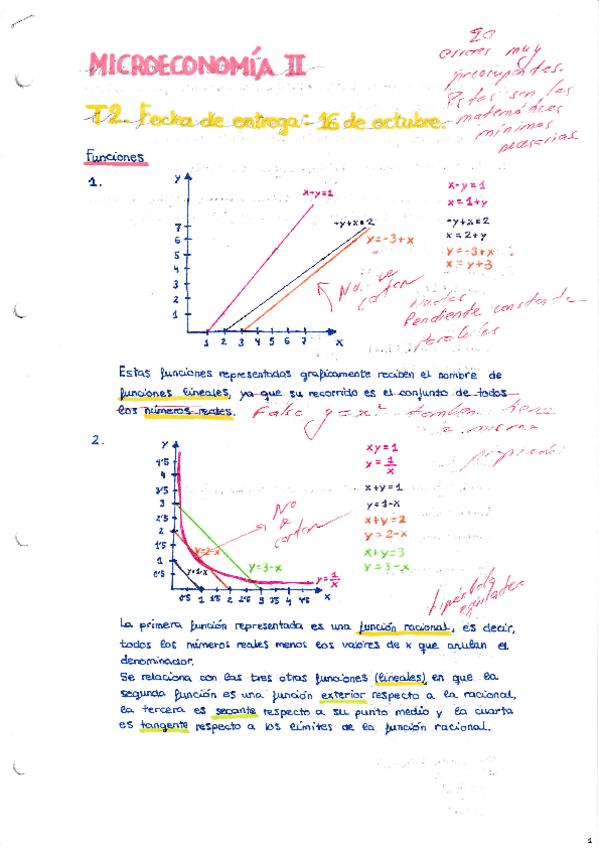 20
errores muy
preocupantes.
Estas son las
matemáticas
mínimas
necesarias.
MICROECONOMÍA II
T2. Fecha de entrega: 16 de octubre.
Funciones
1.
y
x-y=1
-y+x=2
y=-3+x
7
6
5
4
3
2
1
1 2 3 4 5 6 7 x
x-y=1
x=1+y
-y+x=2
x=2+y
y=-3+x
x=y+3
No se
cortan
Rectas
Pendiente constante
Paralelas
Estas funciones representadas graficamente reciben el nombre de
funciones lineales, ya que su recorrido es el conjunto de todos
los números reales.
Falso y=x² también tiene
la misma
propiedad
2.
y
4'5
4
3'5
3
2'5
2
1'5
1
0'5
0'5 1 1'5 2 2'5 3 3'5 4 4'5 x
y=2-x
y=1-x
y=3-x
y=1/x
No
se
cortan
xy=1
y=1/x
x+y=1
y=1-x
x+y=2
y=2-x
x+y=3
y=3-x
hipérbola
equilátera
La primera función representada es una función racional, es decir,
todos los números reales menos los valores de x que anulan el
denominador.
Se relaciona con las tres otras funciones (lineales) en que la
segunda función es una función exterior respecto a la racional,
la tercera es secante respecto a su punto medio y la cuarta
es tangente respecto a los límites de la función racional.
1